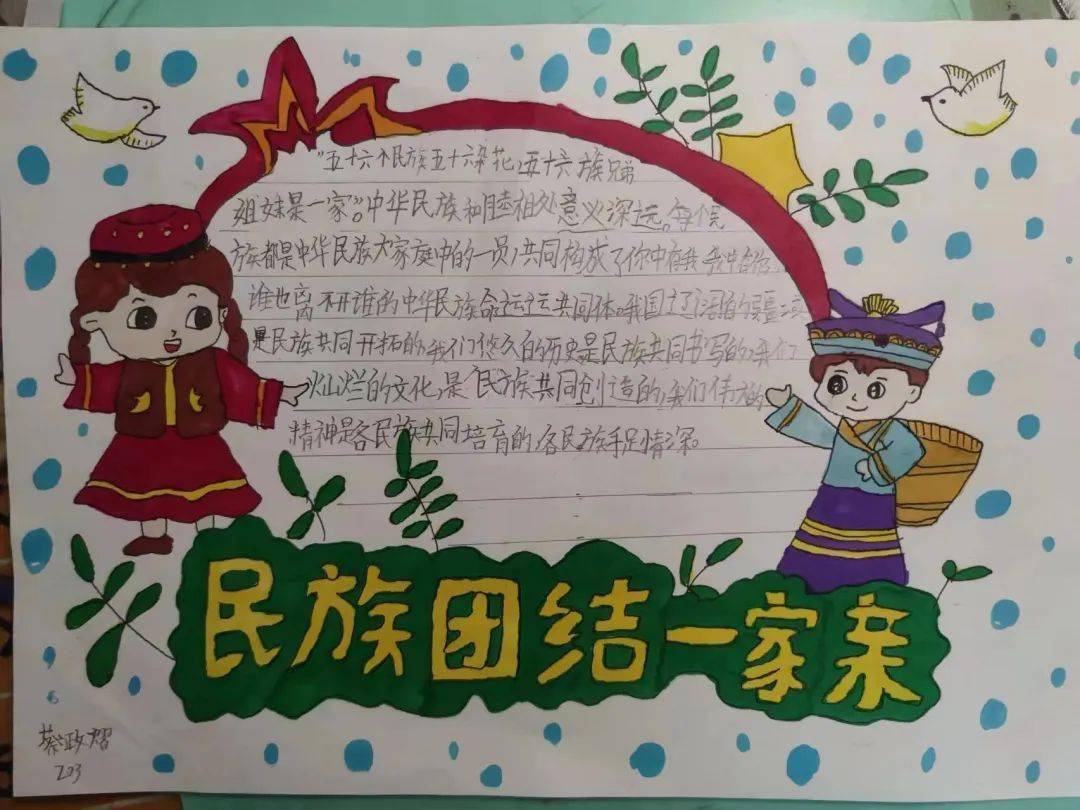 "五十六个民族五十六朵花,五十六族兄弟
姐妹是一家"。中华民族和睦相处意义深远。每个民
族都是中华民族大家庭中的一员,共同构成了你中有我 我中有你
谁也离不开谁的中华民族命运运共同体。我国辽阔的疆
是民族共同开拓的,我们悠久的历史是民族共同书写的,我们
灿烂的文化,是民族共同创造的,我们伟大的
精神是各民族共同培育的,各民族手足情深。
民族团结一家亲
蔡政熠
203